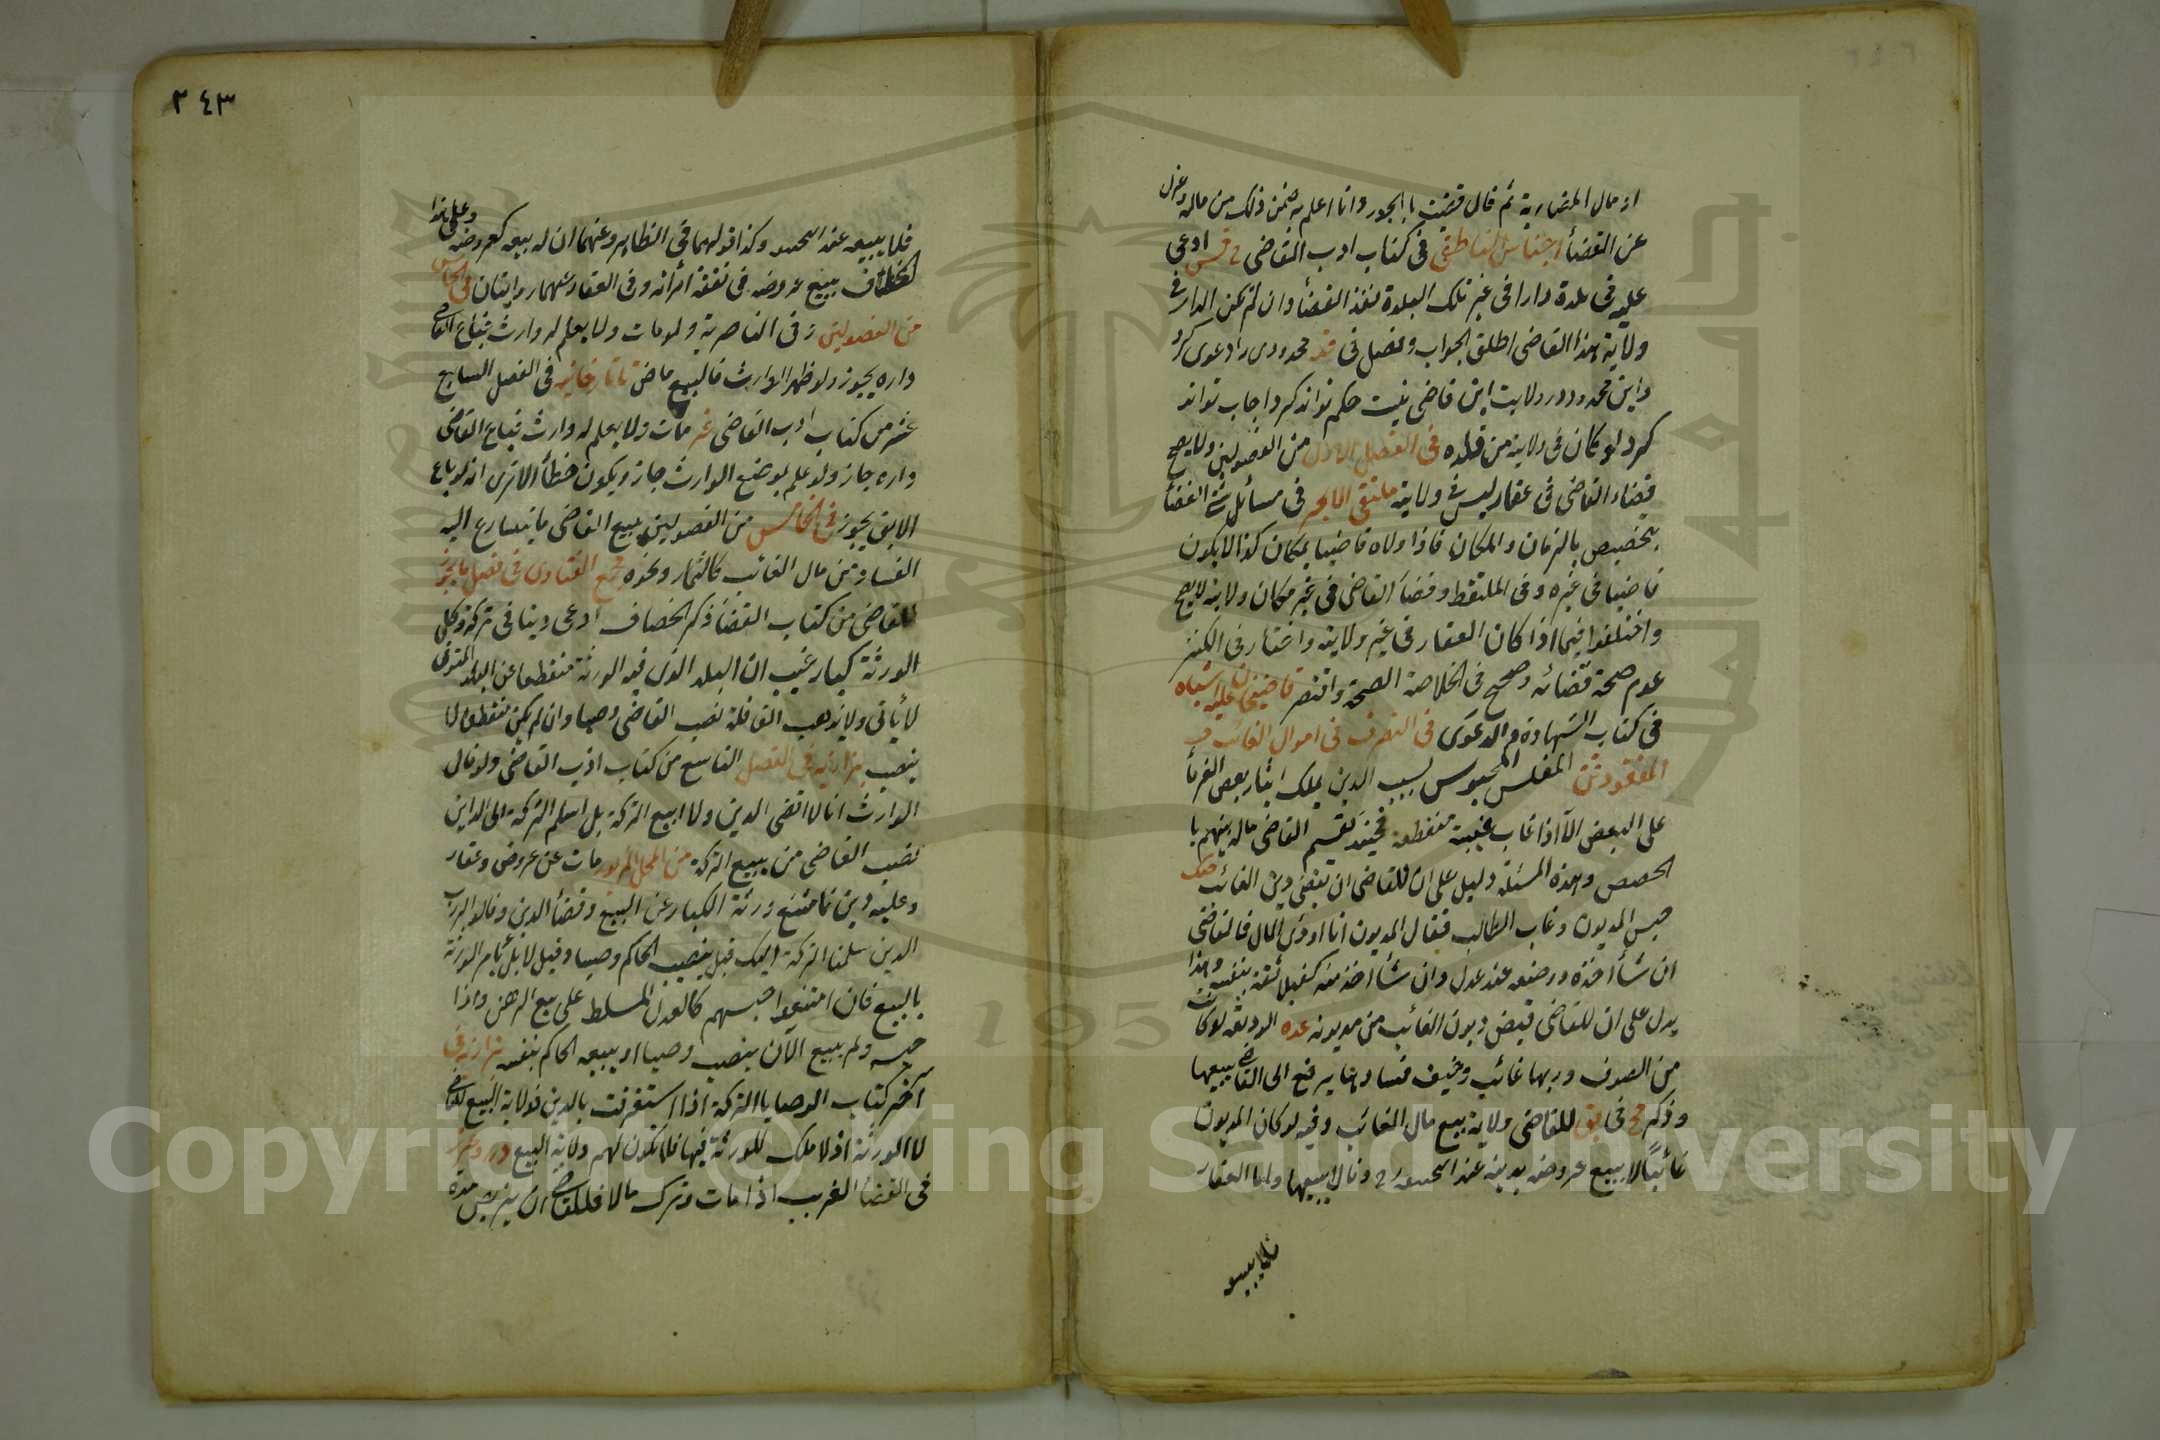 او مال المضاربة ثم قال قضيت بالجور وانا اعلم به ضمن ذلك من ماله وعزل
عن القضأ اجناس الناطفى فى كتاب ادب القاضى ادعى
عليه فى بلدة دارا فى غير تلك البلدة نفذ القضأ وان لم تكن الدار فى
ولاية هذا القاضى اطلق الجواب وفصل فى محدودى را دعوى كرد
واين محدود در ولايت اين قاضى نيست حكم تواند كرد اجاب تواند
كرد لو كان فى ولاية من قلده فى الفصل الاول من الفصولين ولا يصح
قضاء القاضى فى عقار ليس فى ولايته ملتقى الابحر فى مسائل شتى القضأ
يتخصيص بالزمان والمكان فاذا ولاه قاضيا بمكان كذا لا يكون
قاضيا فى غيره وفى الملتقط وقضأ القاضى فى غير مكان ولايته لا يصح
واختلفوا فيما اذا كان العقار فى غير ولايته واختار فى الكنز
عدم صحة قضائه وصحح فى الخلاصة الصحة واقتصر قاضيخان عليه اشباه
فى كتاب الشهادة والدعوى فى التصرف فى اموال الغائب و
المفقود المفلس المحبوس بسبب الدين يملك ايثار بعض الغرمأ
على البعض الا اذا غاب غيبة منقطعة فحينئذ يقسم القاضى ماله بينهم با
لحصص وهذه المسئلة دليل على ان للقاضى ان يقضى دين الغائب
حبس المديون وغاب الطالب فقال المديون انا اودى المال فالقاضى
ان شأ اخذه ووضعه عند عدل وان شأ اخذ منه كفيلا ثقة بنفسه وهذا
يدل على ان للقاضى قبض ديون الغائب من مديونه عده الوديعة لو كانت
من الصوف وربها غائب وخيف فسادها يرفع الى القاضى ليبيعها
وذكر فى للقاضى ولاية بيع مال الغائب وفيه لو كان المديون
غائبًا لا يبيع عروضه بدينه عند ابى حنيفة وقالا يبيعها واما العقار
فلا يبيعه
٢٤٣
فلا يبيعه عند ابى حنيفة وكذا قولهما فى الظاهر وعنهما ان له بيعه كعروضه وعلى هذا
الخلاف بيع عروضه فى نفقة امرأته وفى العقار عنهما روايتان فى الخامس
من الفصولين وفى الناصرية ولو مات ولا يعلم له وارث فباع القاضى
داره يجوز ولو ظهر الوارث فالبيع ماض تاتارخانيه فى الفصل السابع
عشر من كتاب ادب القاضى مات ولا يعلم له وارث فباع القاضى
داره جاز ولو علم بموضع الوارث جاز ويكون خطأ الا ترى انه لو باع
الابق يجوز فى الخامس من الفصولين يبيع القاضى ما يتسارع اليه
الفساد من مال الغائب كالثمار ونحوه مجمع الفتاوى فى فصل ما يجوز
للقاضى من كتاب القضأ ذكر الخصاف ادعى دينا فى تركة وكل
الورثة كبار غيب ان البلد الذى فيه الورثة منقطعا عن البلد المتوفى
لا يأتى ولا يذهب القافلة نصب القاضى وصيا وان لم يكن منقطعا لا
ينصب بزازيه فى الفصل التاسع من كتاب ادب القاضى ولو قال
الوارث انا لا اقضى الدين ولا ابيع التركة بل اسلم التركة الى الداين
نصب القاضى من يبيع التركة من المحل المزبور مات عن عروض وعقار
وعليه دين فامتنع ورثة الكبار عن البيع وقضأ الدين وقالوا لرب
الدين سلمنا التركة اليك قيل ينصب الحاكم وصيا وقيل لا بل يأمر الورثة
بالبيع فان امتنعوا حبسهم كالعدل المسلط على بيع الرهن واذا
حبسه ولم يبيع الآن ينصب وصيا او يبيعه الحاكم بنفسه بزازيه فى
آخر كتاب الوصايا التركة اذا استغرقت بالدين فولاية البيع للقاضى
لا الورثة اذ لا ملك للورثة فيها فلا يكون لهم ولاية البيع درر وغرر
فى القضأ الغريب اذا مات وترك مالا فللقاضى ان يتربص مدة
Copyright © King Saud University
195